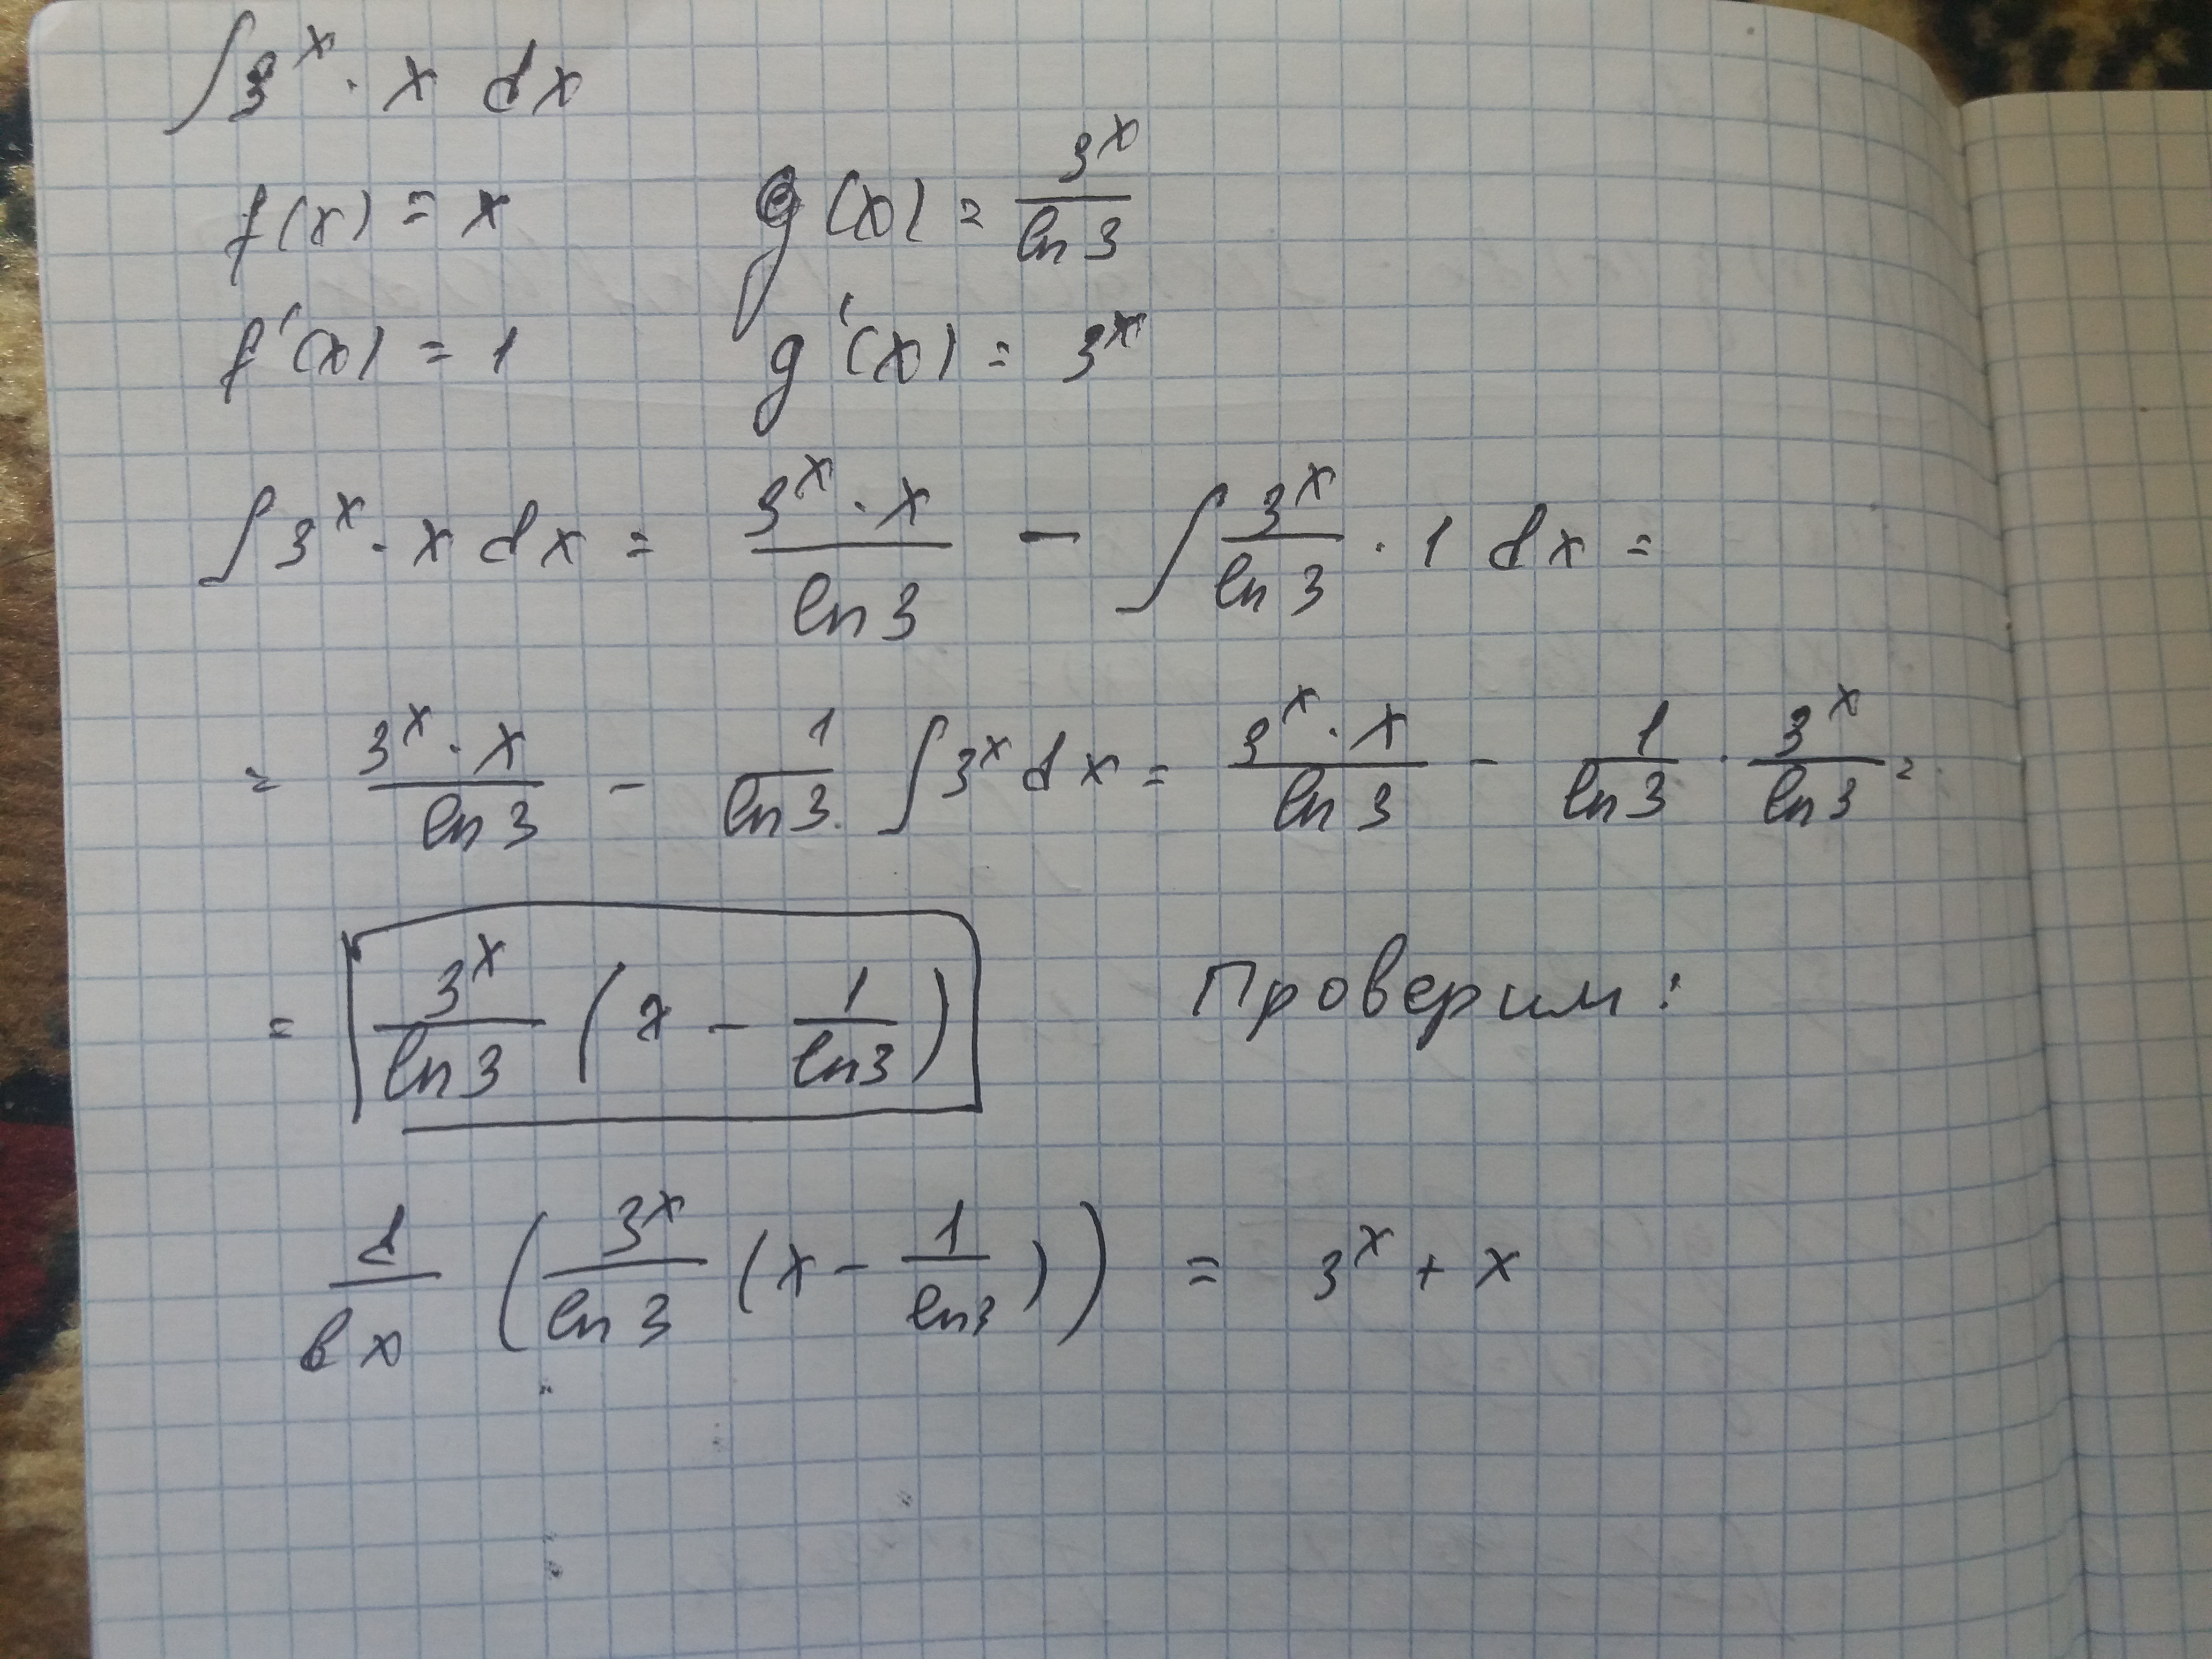 ∫ 3^x · x dx
f(x) = x    g(x) = 3^x / ln 3
f'(x) = 1    g'(x) = 3^x
∫ 3^x · x dx = (3^x · x) / ln 3 − ∫ 3^x / ln 3 · 1 dx =
= (3^x · x) / ln 3 − 1 / ln 3 ∫ 3^x dx = (3^x · x) / ln 3 − 1 / ln 3 · 3^x / ln 3 =
= 3^x / ln 3 (x − 1 / ln 3)    Проверим:
d / dx (3^x / ln 3 (x − 1 / ln 3)) = 3^x + x